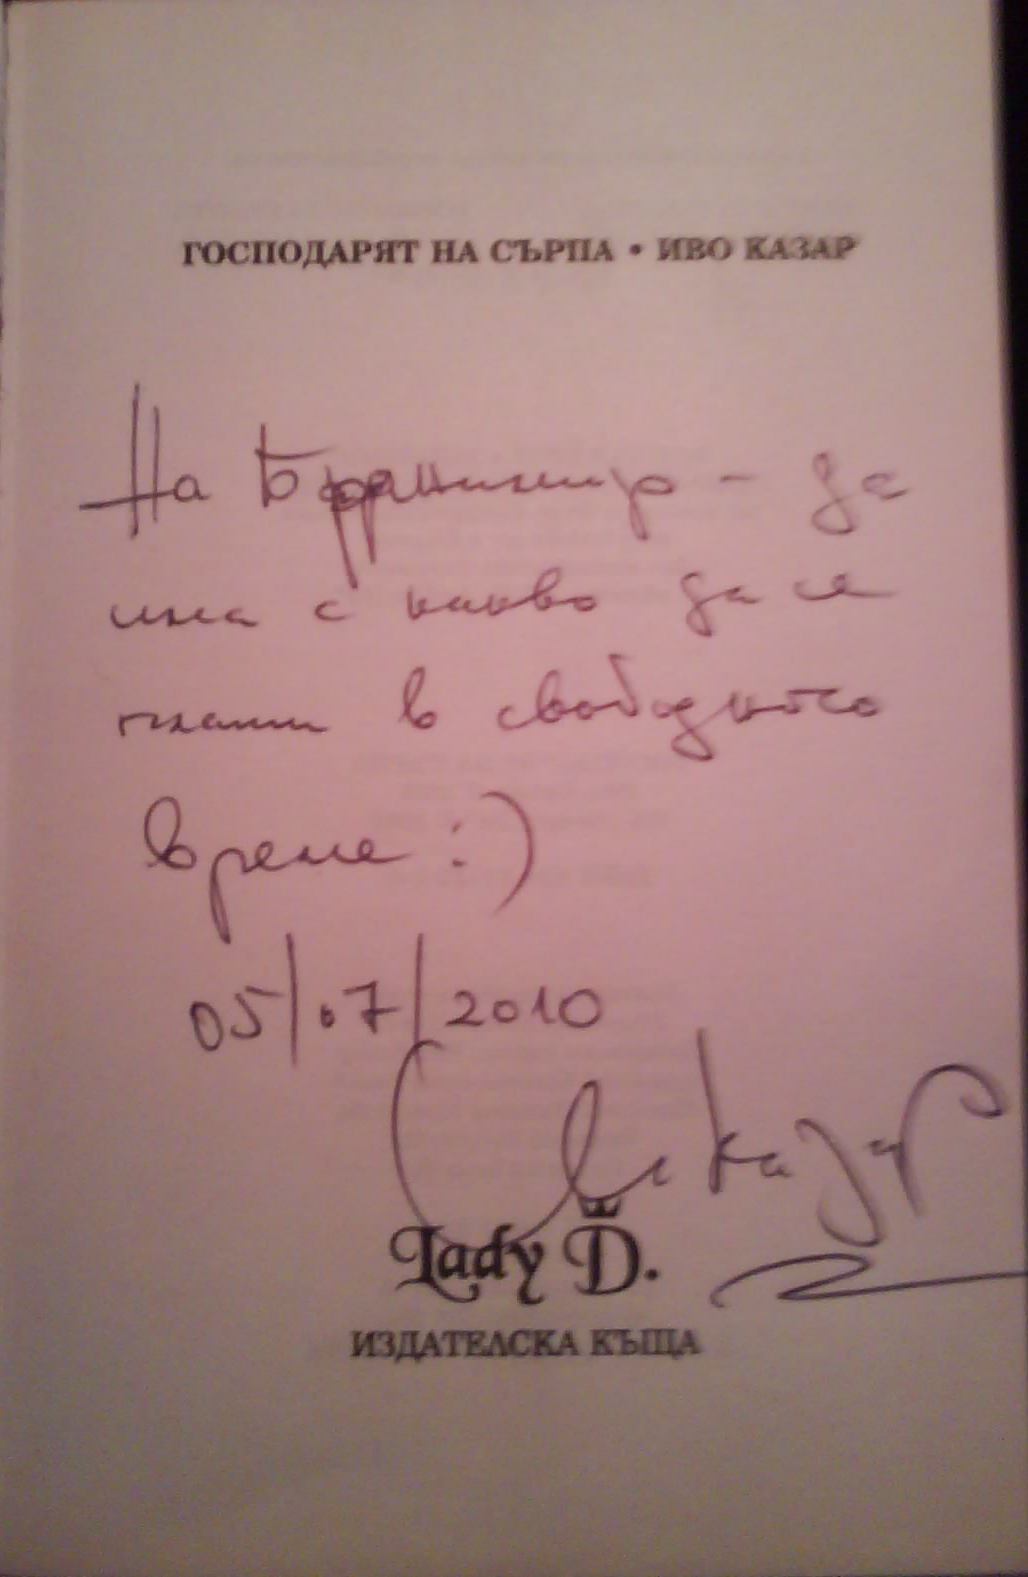 ГОСПОДАРЯТ НА СЪРПА • ИВО КАЗАР
На - да
има с какво да се
плаши в свободното
време :)
05/07/2010
Иво Казар
Lady D.
ИЗДАТЕЛСКА КЪЩА